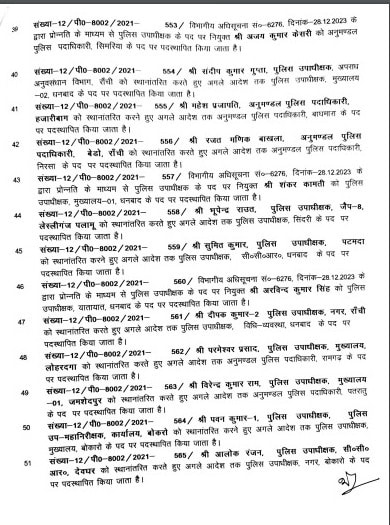 39 संख्या-12/पी0-8002/2021- 553/ विभागीय अधिसूचना सं०-6276, दिनांक-28.12.2023 के
द्वारा प्रोन्नति के माध्यम से पुलिस उपाधीक्षक के पद पर नियुक्त श्री अजय कुमार केसरी को अनुमण्डल
पुलिस पदाधिकारी, सिमरिया के पद पर पदस्थापित किया जाता है।
40 संख्या-12/पी0-8002/2021- 554/ श्री संदीप कुमार गुप्ता, पुलिस उपाधीक्षक, अपराध
अनुसंधान विभाग, राँची को स्थानांतरित करते हुए अगले आदेश तक पुलिस उपाधीक्षक, मुख्यालय
-02, धनबाद के पद पर पदस्थापित किया जाता है।
41 संख्या-12/पी0-8002/2021- 555/ श्री महेश प्रजापति, अनुमण्डल पुलिस पदाधिकारी,
हजारीबाग को स्थानांतरित करते हुए अगले आदेश तक अनुमण्डल पुलिस पदाधिकारी, बाघमारा के पद
पर पदस्थापित किया जाता है।
42 संख्या-12/पी0-8002/2021- 556/ श्री रजत मणिक बाखला, अनुमण्डल पुलिस
पदाधिकारी, बेड़ो, राँची को स्थानांतरित करते हुए अगले आदेश तक अनुमण्डल पुलिस पदाधिकारी,
निरसा के पद पर पदस्थापित किया जाता है।
43 संख्या-12/पी0-8002/2021- 557/ विभागीय अधिसूचना सं०-6276, दिनांक-28.12.2023 के
द्वारा प्रोन्नति के माध्यम से पुलिस उपाधीक्षक के पद पर नियुक्त श्री शंकर कामती को पुलिस
उपाधीक्षक, मुख्यालय-01, धनबाद के पद पर पदस्थापित किया जाता है।
44 संख्या-12/पी0-8002/2021- 558/ श्री भूपेन्द्र राउत, पुलिस उपाधीक्षक, जैप-8,
लेस्लीगंज पलामू को स्थानांतरित करते हुए अगले आदेश तक पुलिस उपाधीक्षक, सिंदरी के पद पर
पदस्थापित किया जाता है।
45 संख्या-12/पी0-8002/2021- 559/ श्री सुमित कुमार, पुलिस उपाधीक्षक, पटमदा
को स्थानांतरित करने हुए अगले आदेश तक पुलिस उपाधीक्षक, सी०सी०आर०, धनबाद के पद पर
पदस्थापित किया जाता है।
46 संख्या-12/पी0-8002/2021- 560/ विभागीय अधिसूचना सं०-6276, दिनांक-28.12.2023 के
द्वारा प्रोन्नति के माध्यम से पुलिस उपाधीक्षक के पद पर नियुक्त श्री अरविन्द कुमार सिंह को पुलिस
उपाधीक्षक, यातायात, धनबाद के पद पर पदस्थापित किया जाता है।
47 संख्या-12/पी0-8002/2021- 561/ श्री दीपक कुमार-2 पुलिस उपाधीक्षक, नगर, राँची
को स्थानांतरित करते हुए अगले आदेश तक पुलिस उपाधीक्षक, विधि-व्यवस्था, धनबाद के पद पर
पदस्थापित किया जाता है।
48 संख्या-12/पी0-8002/2021- 562/ श्री परमेश्वर प्रसाद, पुलिस उपाधीक्षक, मुख्यालय,
लोहरदगा को स्थानांतरित करते हुए अगले आदेश तक अनुमण्डल पुलिस पदाधिकारी, रामगढ़ के पद
पर पदस्थापित किया जाता है।
49 संख्या-12/पी0-8002/2021- 563/ श्री विरेन्द्र कुमार राम, पुलिस उपाधीक्षक, मुख्यालय
-01, जमशेदपुर को स्थानांतरित करते हुए अगले आदेश तक अनुमण्डल पुलिस पदाधिकारी, पतरातु
के पद पर पदस्थापित किया जाता है।
50 संख्या-12/पी0-8002/2021- 564/ श्री पवन कुमार-1, पुलिस उपाधीक्षक, पुलिस
उप-महानिरीक्षक, कार्यालय, बोकारो को स्थानांतरित करते हुए अगले आदेश तक पुलिस उपाधीक्षक,
मुख्यालय, बोकारो के पद पर पदस्थापित किया जाता है।
51 संख्या-12/पी0-8002/2021- 565/ श्री आलोक रंजन, पुलिस उपाधीक्षक, सी०सी०
आर०, देवघर को स्थानांतरित करते हुए अगले आदेश तक पुलिस उपाधीक्षक, नगर, बोकारो के पद
पर पदस्थापित किया जाता है।